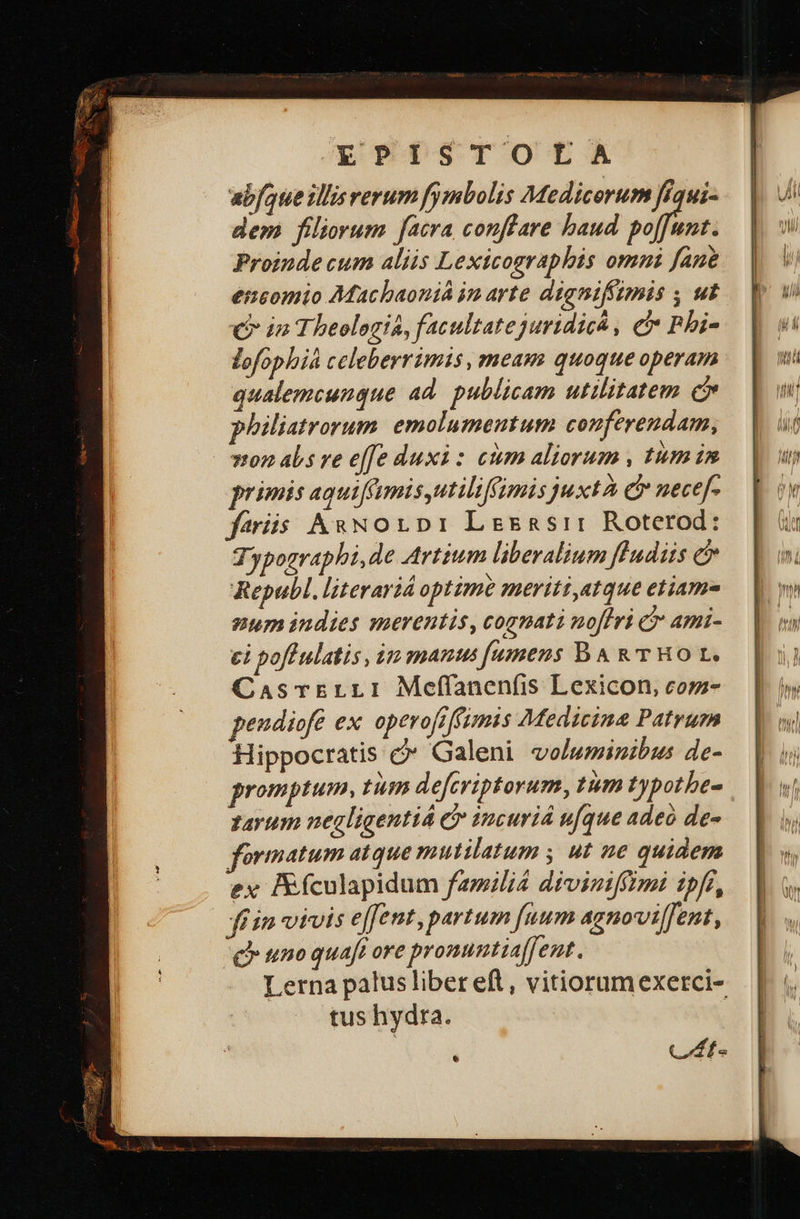 EPISTOLA
abſque illis rerum ſymbolis Medicorum ſiqui-
dem filiorum ſacra conſtare haud poſſunt.
Proinde cum aliis Lexicographis omni ſanè
encomio Machaoniâ in arte digniſſimis ; ut
& in Theologiâ, facultate juridicâ , & Phi-
loſophiâ celeberrimis, meam quoque operam
qualemcunque ad publicam utilitatem &
philiatrorum emolumentum conferendam,
non abs re eſſe duxi : cùm aliorum , tùm in
primis aquiſſimis, utiliſſimis juxtà & neceſ-
ſariis ARNOLDI LEERSII Roterod:
Typographi, de Artium liberalium ſtudiis &
Republ. literariâ optimè meriti, atque etiam-
num indies merentis, cognati noſtri & ami-
ci poſtulatis, in manus ſumens BARTHOL.
CASTELLI Meſſanenſis Lexicon, com-
pendioſè ex operoſiſſimis Medicinæ Patrum
Hippocratis & Galeni voluminibus de-
promptum, tùm deſcriptorum, tùm typothe-
tarum negligentiâ & incuriâ uſque adeò de-
formatum atque mutilatum ; ut ne quidem
ex Æſculapidum familiâ diviniſſimi ipſi,
ſi in vivis eſſent, partum ſuum agnoviſſent,
& uno quaſi ore pronuntiaſſent.
Lerna palus liber eſt, vitiorum exerci-
tus hydra.
At-